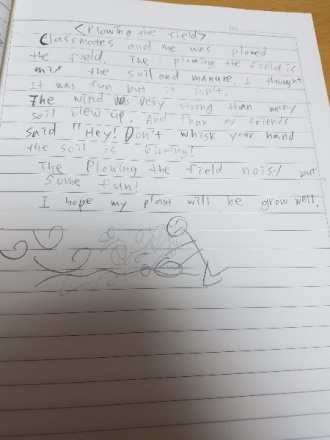 <Plowing the field>
Classmates and me was plowed
the field. The plowing the field is
mix the soil and manure I thought
It was fun but it isn't.
The wind was very strong than many
soil blew up. And than my friends
said "Hey! Don't whisk your hand
the soil is blowing!
The Plowing the field noisy but
some fun!
I hope my plant will be grow well.